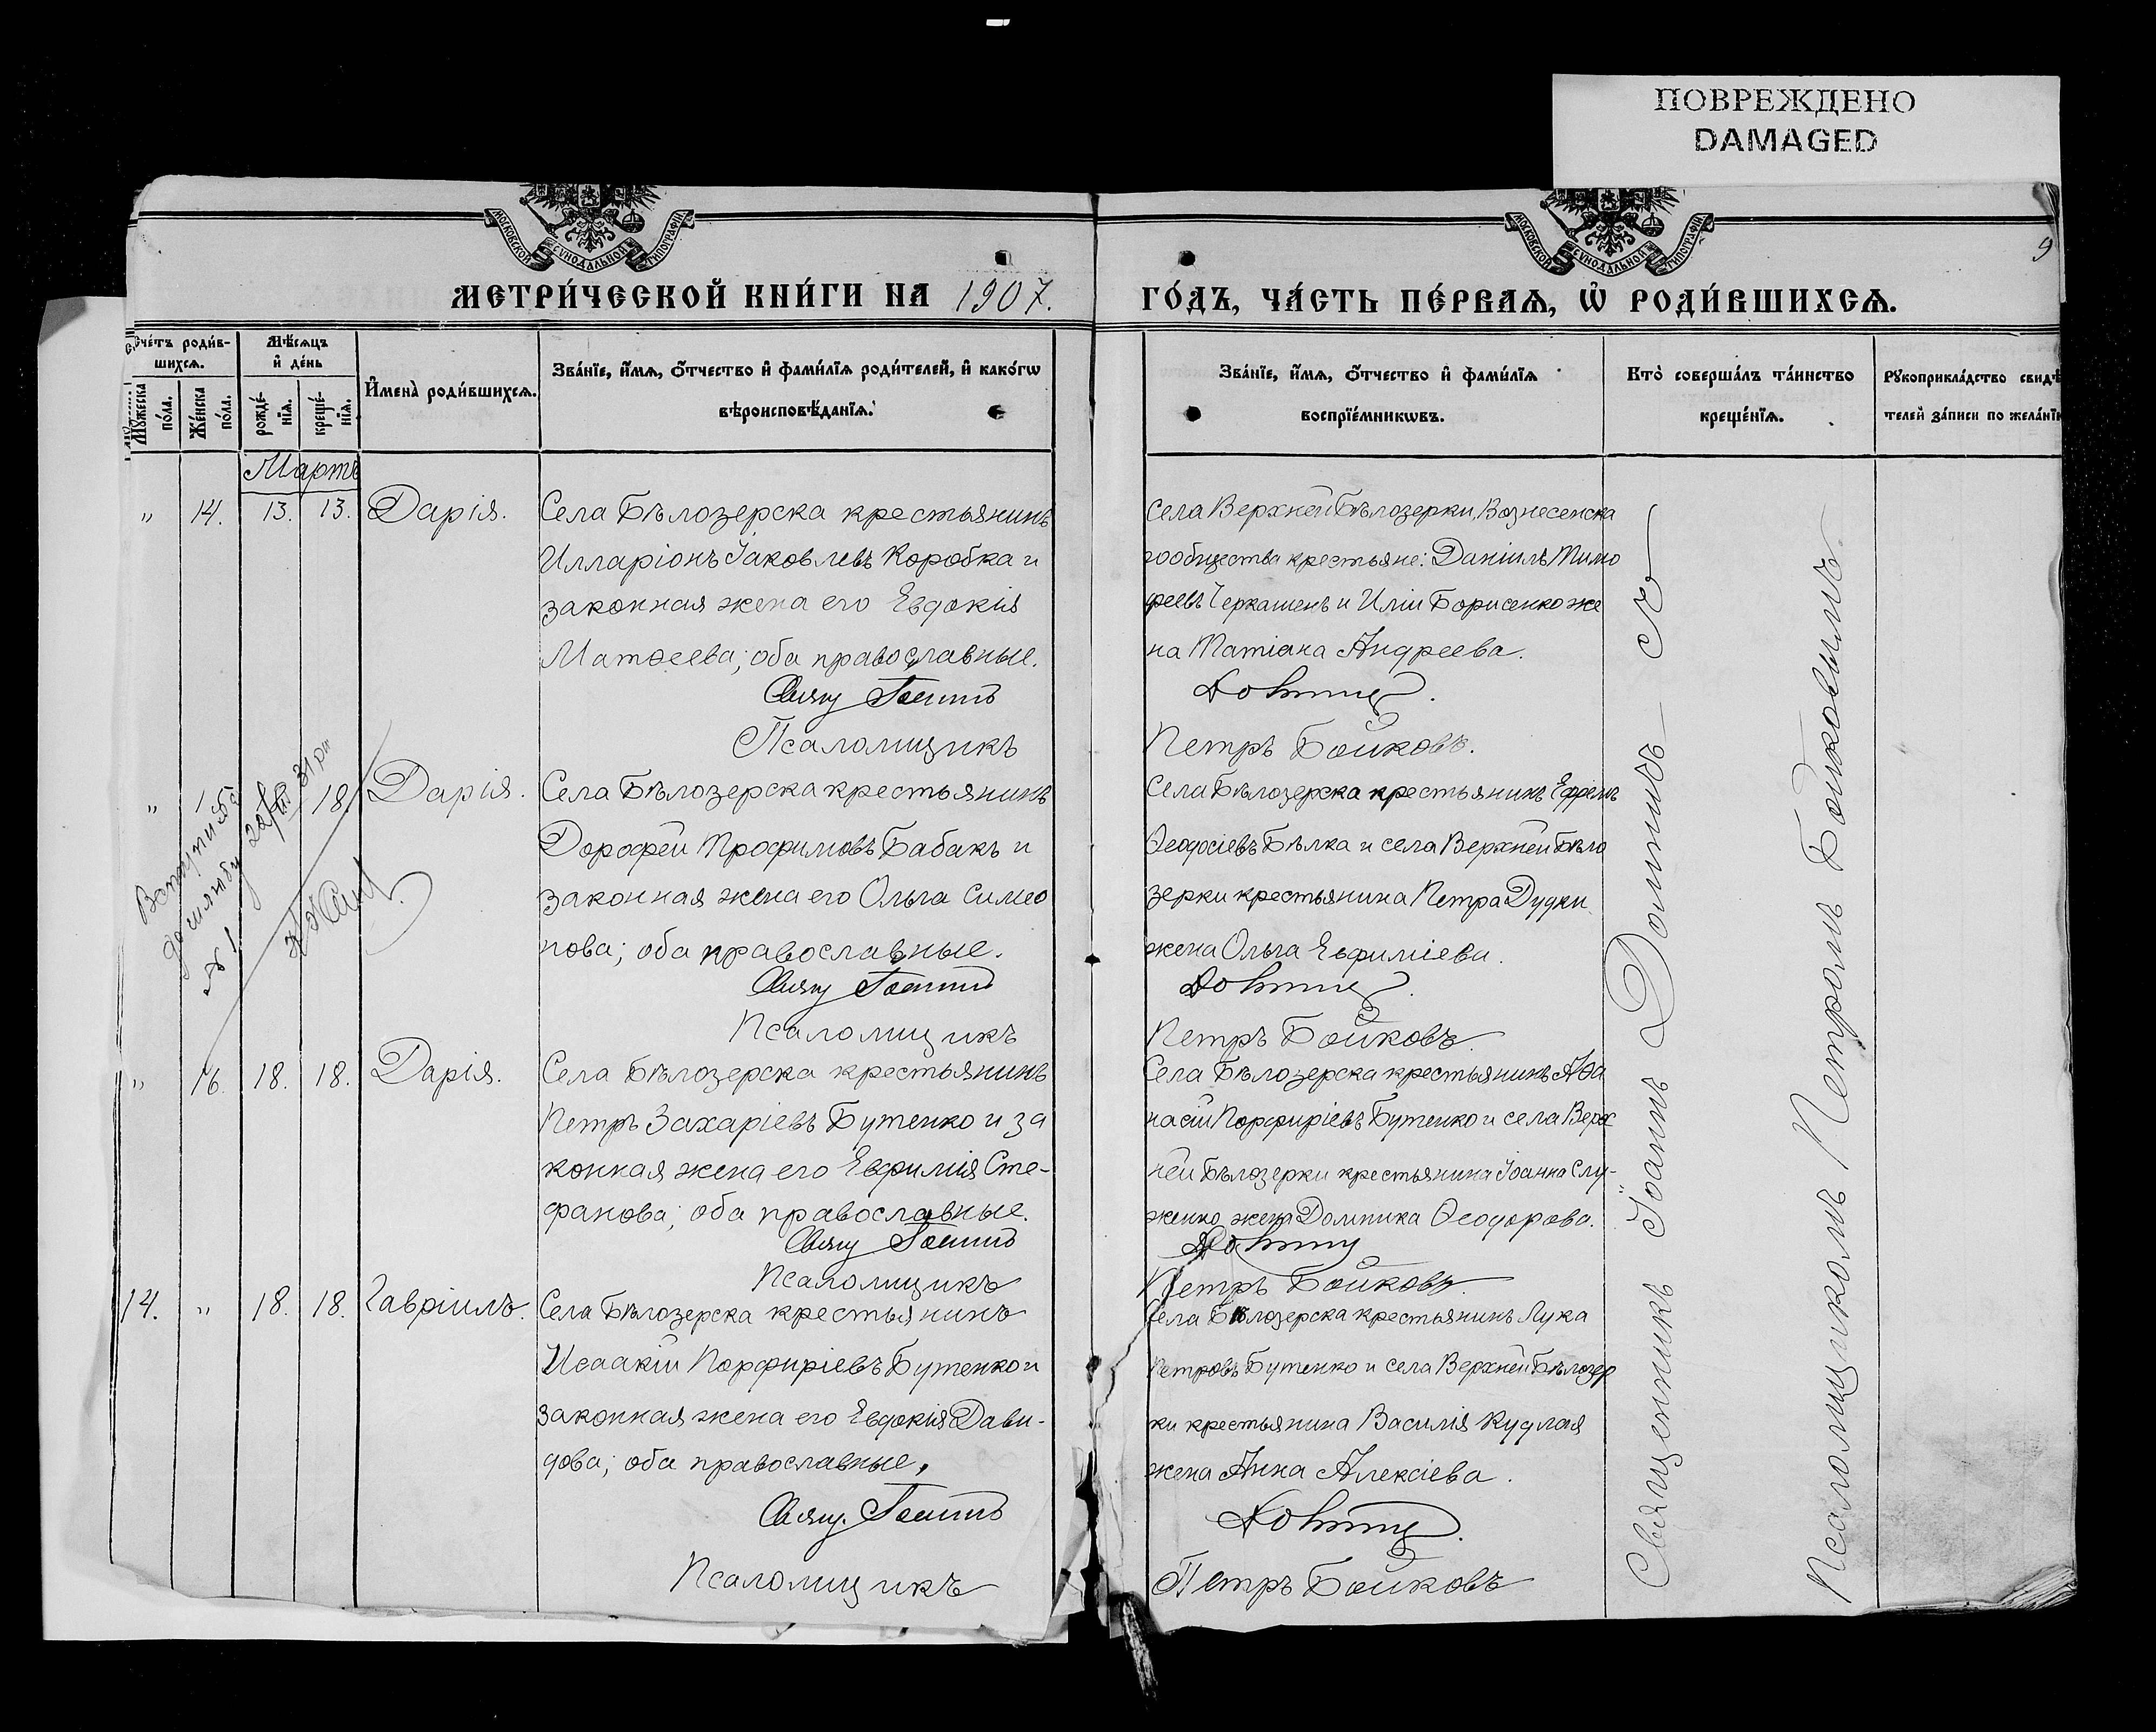 ПОВРЕЖДЕНО
DAMAGED
МОСКОВСКОЙ СУНОДАЛЬНОЙ ТИПОГРАФІИ
МОСКОВСКОЙ СУНОДАЛЬНОЙ ТИПОГРАФІИ
9
МЕТРИ́ЧЕСКОЙ КНИ́ГИ НА 1907.
ГО́ДЪ, ЧА́СТЬ ПЕ́РВАѦ, Ѡ҆ РОДИ́ВШИХСѦ.
Сче́тъ роди́в-
шихсѧ.
Мꙋ́жеска по́ла.
Же́нска по́ла.
Мѣ́сѧцъ
и҆ де́нь
рожде́-
нїѧ.
креще́-
нїѧ.
И҆мена̀ роди́вшихсѧ.
Зва́нїе, и҆́мѧ, ѻ҆́тчество и҆ фами́лїѧ роди́телей, и҆ како́гѡ
вѣроисповѣ́данїѧ.
Зва́нїе, и҆́мѧ, ѻ҆́тчество и҆ фами́лїѧ
воспрїе́мникѡвъ.
Кто̀ соверша́лъ та́инство
креще́нїѧ.
Рꙋкоприкла́дство свидѣ
телей за́писи по жела́нїю
Мартъ
" 14. 13. 13. Дарія.
Села Бѣлозерска крестьянинъ
Илларіонъ Іаковлевъ Коробка и
законная жена его Евдокія
Матѳеева; оба православные.
Свящ Іоаннъ
Псаломщикъ
Села Верхней Бѣлозерки, Вознесенска
го общества крестьяне: Даніилъ Тимо
феевъ Черкашенъ и Иліи Борисенко же
на Татіана Андреева.
Долтиц.
Петръ Бойковъ.
" 18. Дарія.
Села Бѣлозерска крестьянинъ
Дорофей Трофимовъ Бабакъ и
законная жена его Ольга Симео
нова; оба православные.
Свящ Іоаннъ
Псаломщикъ
Села Бѣлозерска крестьянинъ Ефремъ
Ѳеодосіевъ Бѣлка и села Верхней Бѣло
зерки крестьянина Петра Дудки
жена Ольга Евфиміева.
Петръ Бойковъ.
" 16. 18. 18. Дарія.
Села Бѣлозерска крестьянинъ
Петръ Захаріевъ Бутенко и за
конная жена его Евфимія Сте-
фанова; оба православные.
Свящ Іоаннъ
Псаломщикъ
Села Бѣлозерска крестьянинъ Аѳа
насій Порфиріевъ Бутенко и села Верх
ней Бѣлозерки крестьянина Іоанна Слу-
женко жена Домника Ѳеодорова.
Петръ Бойковъ.
14. " 18. 18. Гавріилъ.
Села Бѣлозерска крестьянинъ
Исаакій Порфиріевъ Бутенко и
законная жена его Евдокія Дави-
дова; оба православные.
Свящ. Іоаннъ
Псаломщикъ
Села Бѣлозерска крестьянинъ Лука
Петровъ Бутенко и села Верхней Бѣлозер
ки крестьянина Василія Кудлая
жена Анна Алексіева.
Петръ Бойковъ
Священникъ Іоаннъ
Псаломщикомъ Петромъ Бойковымъ